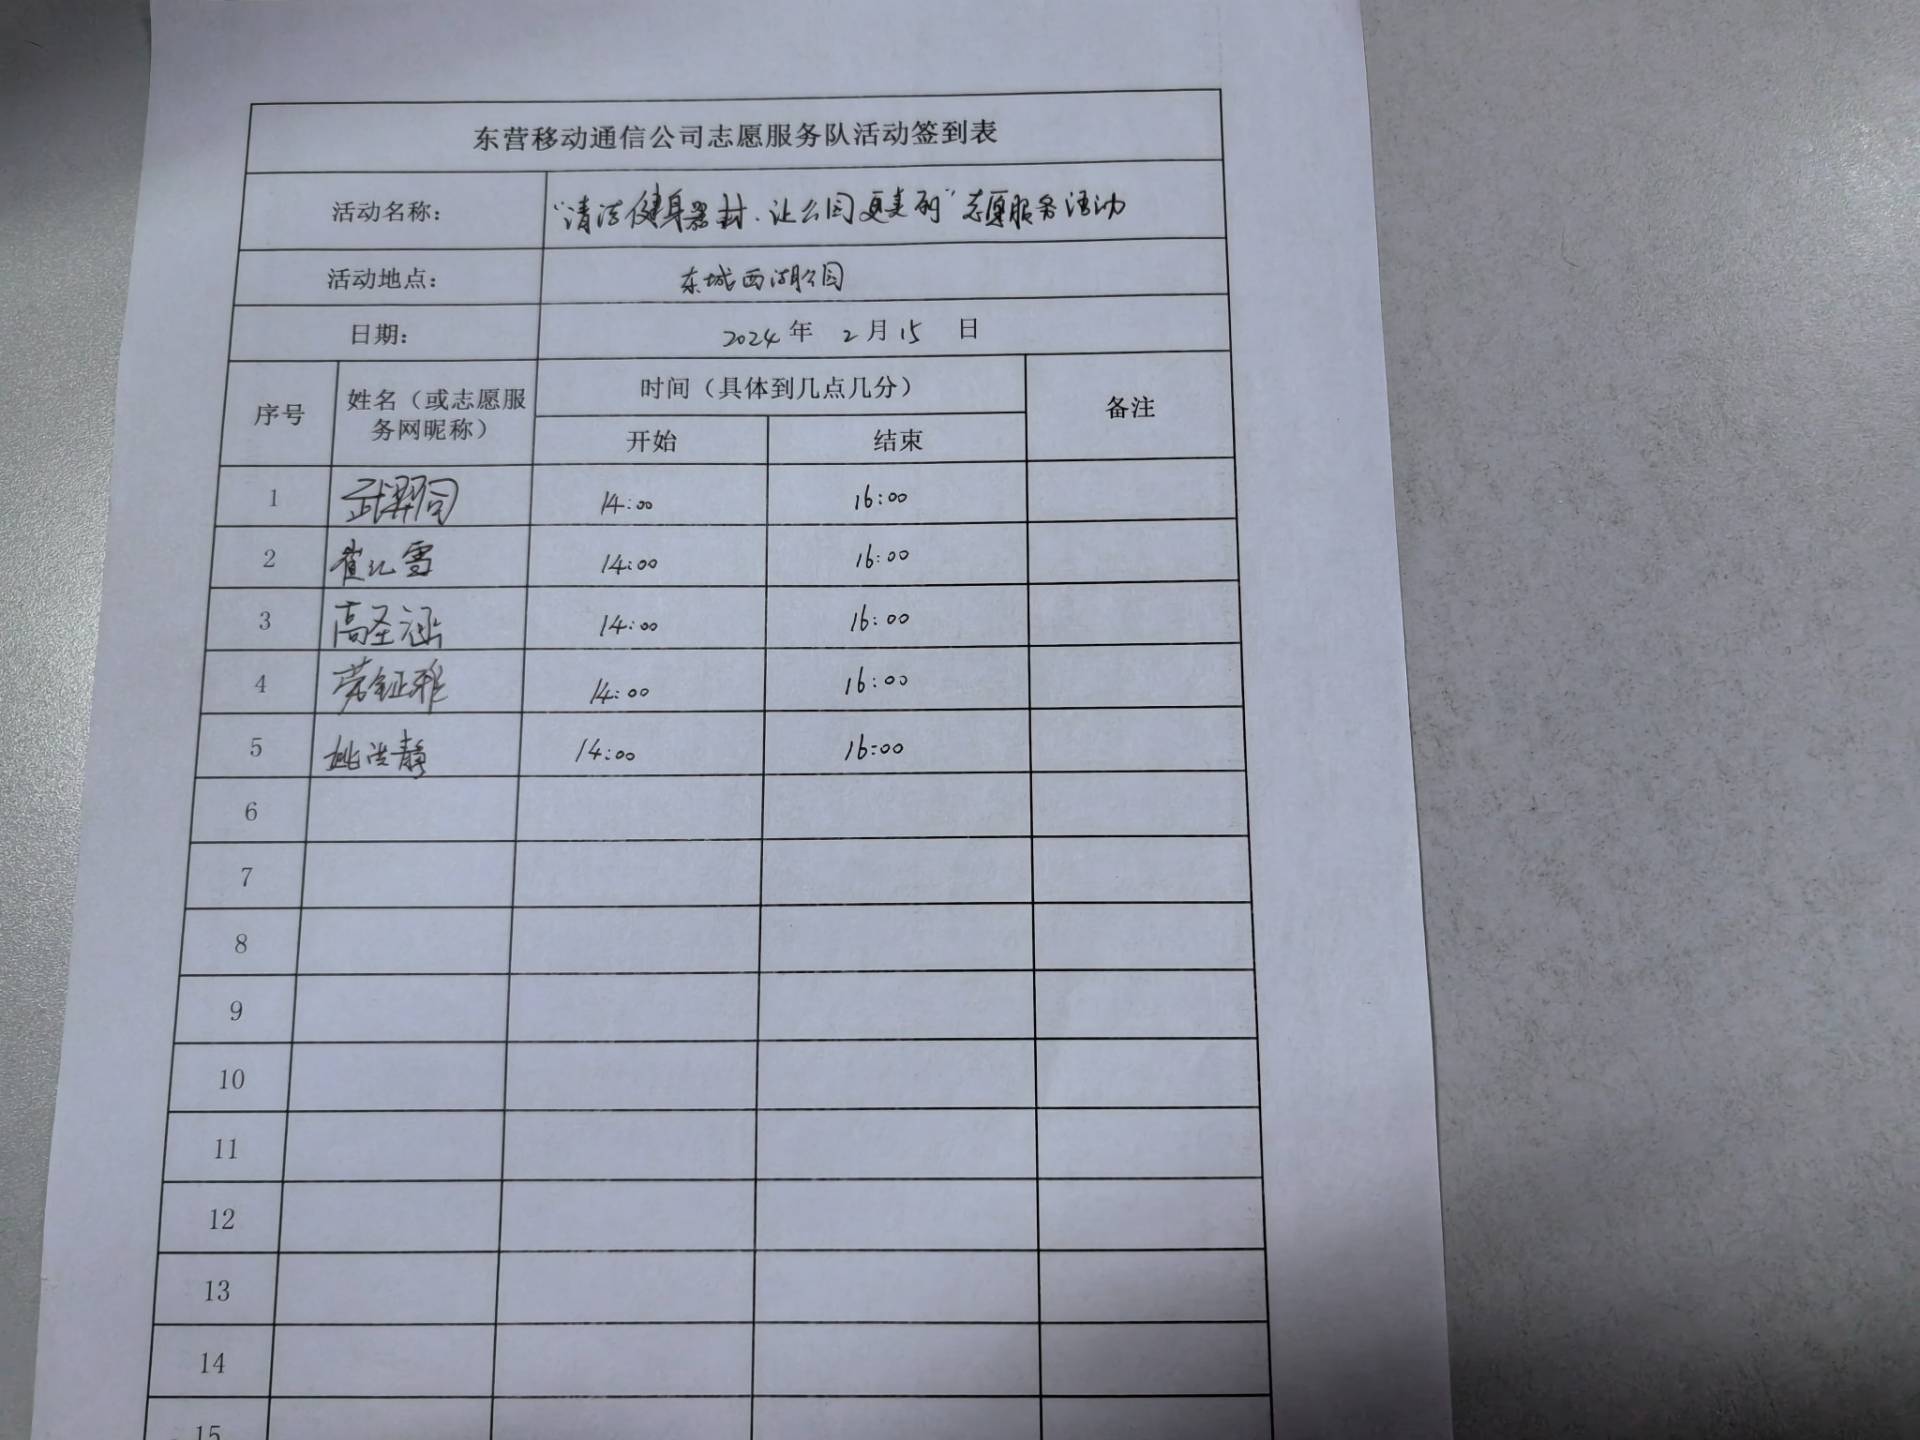 东营移动通信公司志愿服务队活动签到表
活动名称： “清洁健身器材、让公园更美丽”志愿服务活动
活动地点： 东城西湖公园
日期： 2024年 2月15 日
序号 姓名（或志愿服务网昵称） 时间（具体到几点几分） 备注
开始 结束
1 武羿同 14:00 16:00
2 崔汇雪 14:00 16:00
3 高圣涵 14:00 16:00
4 14:00 16:00
5 姚洪静 14:00 16:00
6
7
8
9
10
11
12
13
14
15